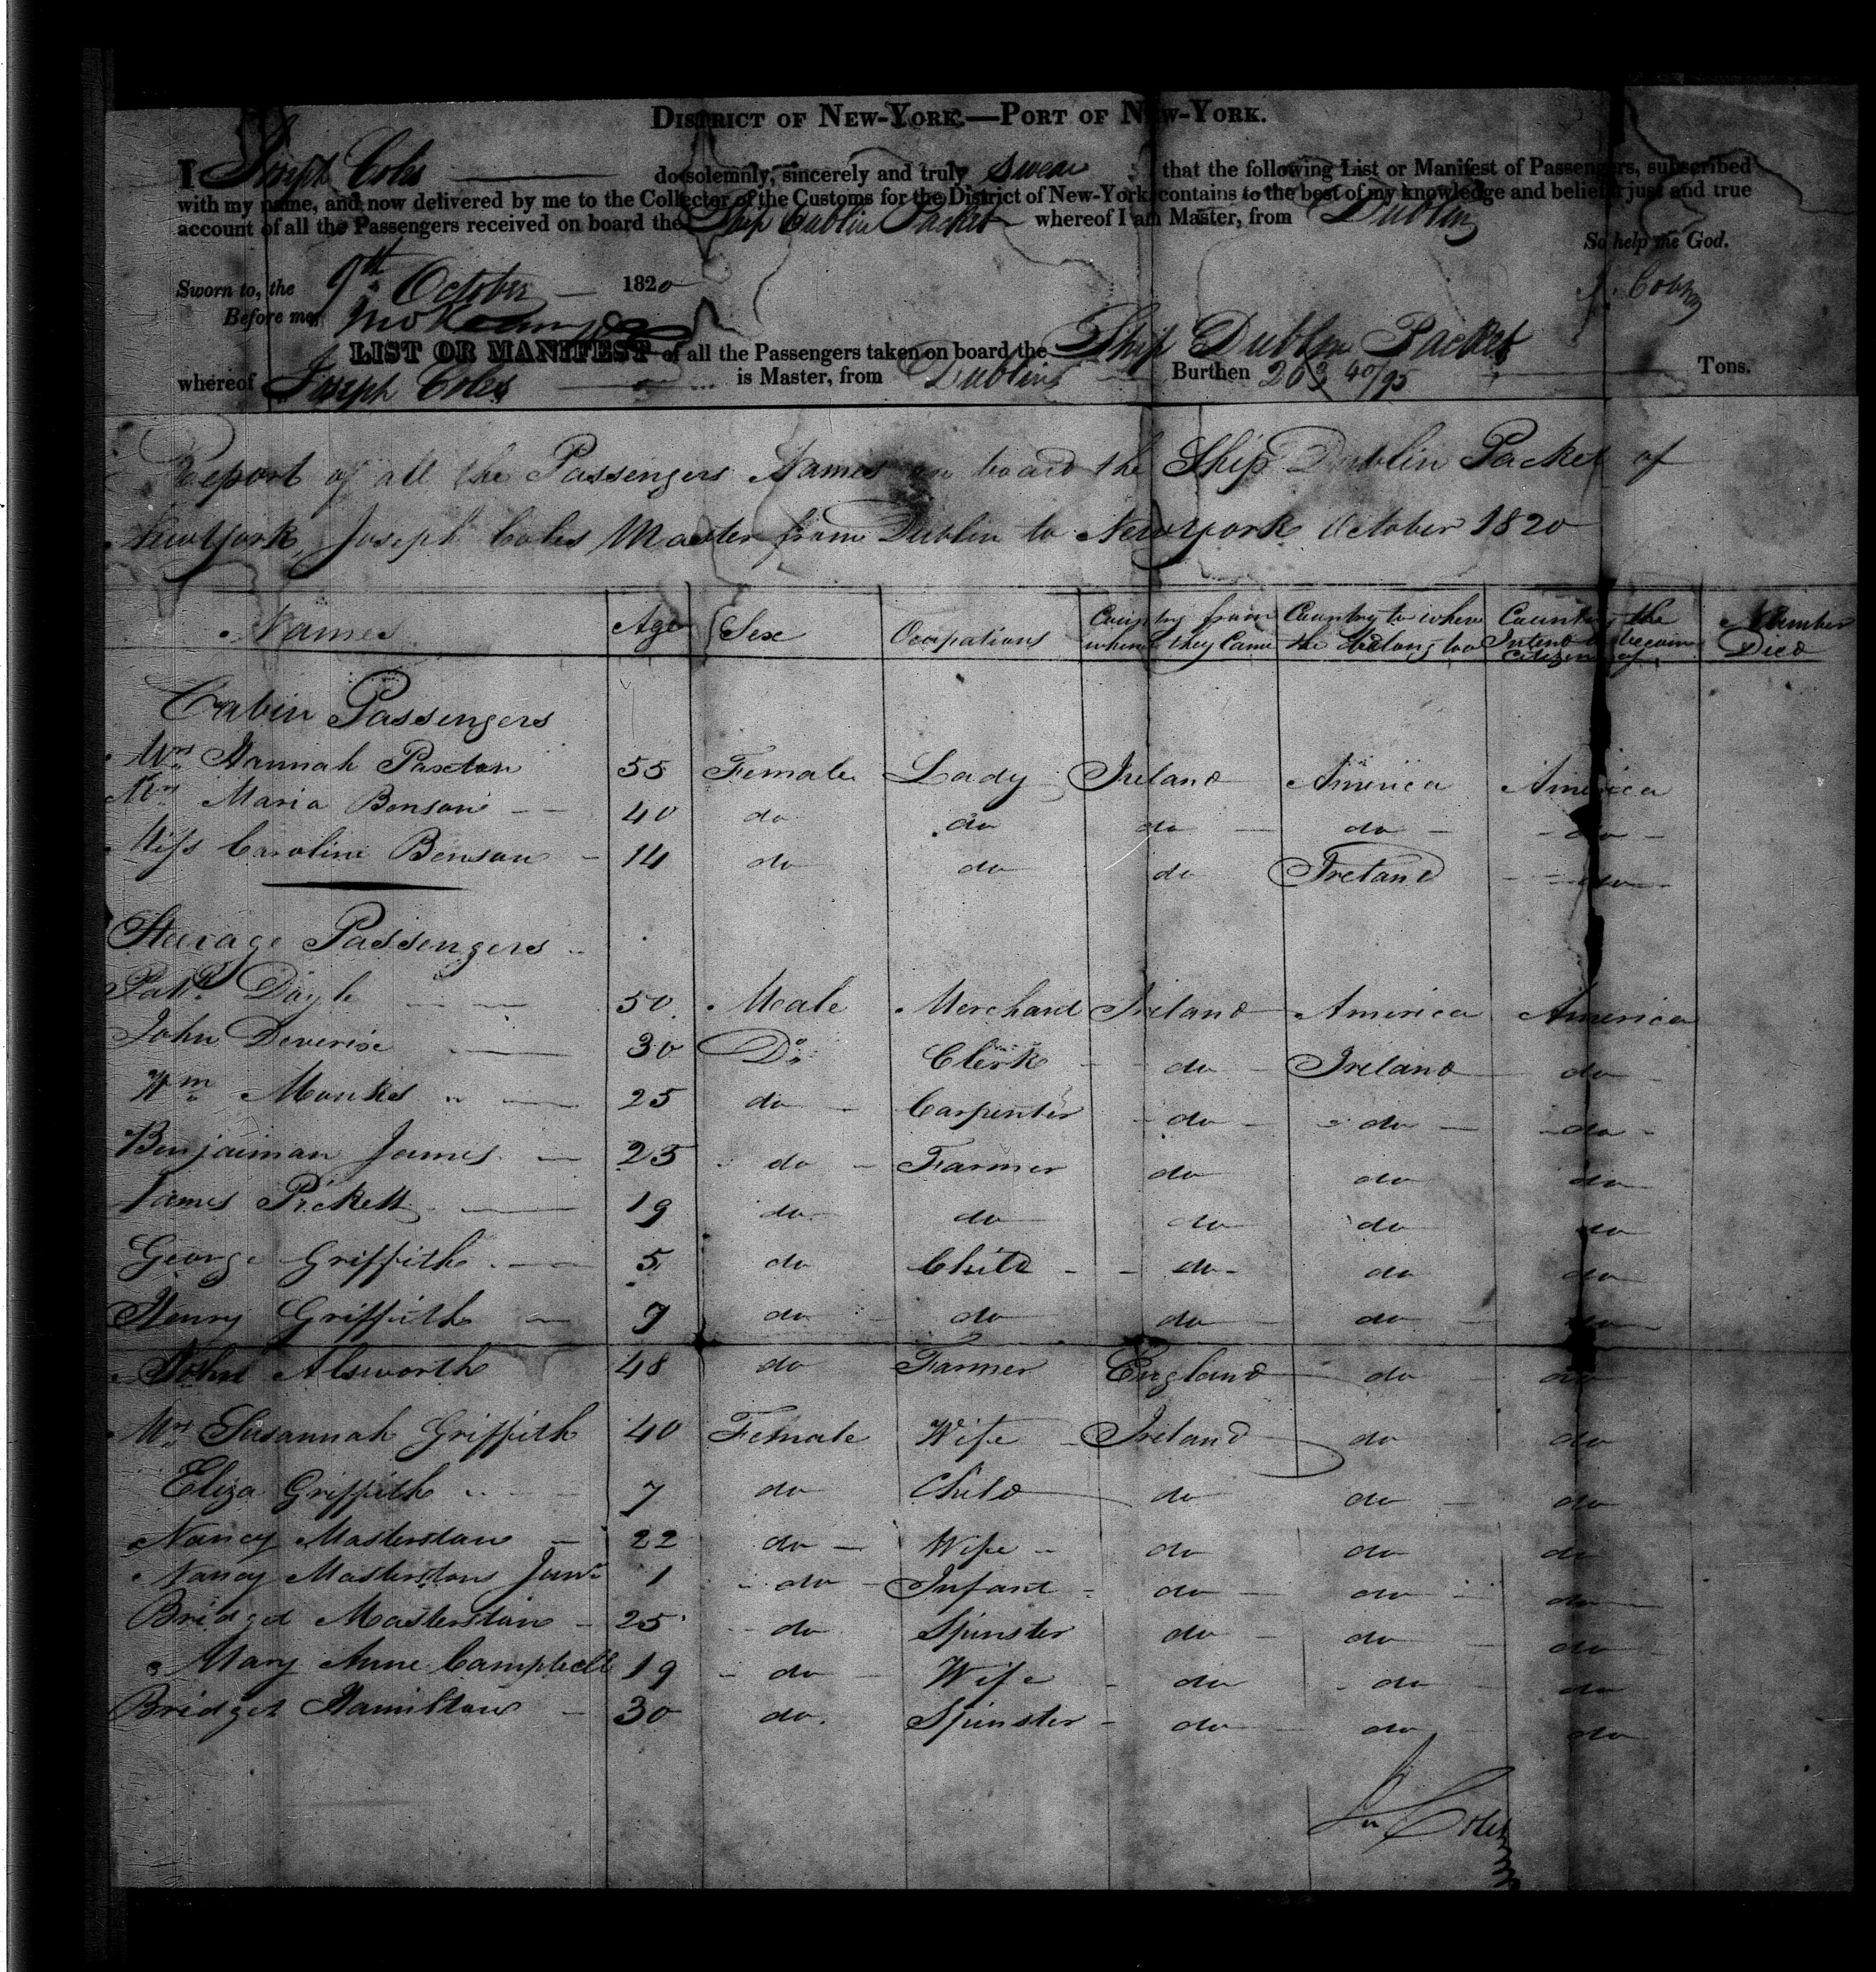 DISTRICT OF NEW-YORK.—PORT OF NEW-YORK.
I Joseph Coles do solemnly, sincerely and truly Swear that the following List or Manifest of Passengers, subscribed
with my name, and now delivered by me to the Collector of the Customs for the District of New-York, contains to the best of my knowledge and belief a just and true
account of all the Passengers received on board the Ship Dublin Packet whereof I am Master, from Dublin
So help me God.
Sworn to, the 9th October 1820
J. Coles
Before me,
LIST OR MANIFEST of all the Passengers taken on board the Ship Dublin Packet
whereof Joseph Coles is Master, from Dublin Burthen 263 40/95 Tons.
Report of all the Passengers Names on board the Ship Dublin Packet of
Newyork, Joseph Coles Master from Dublin to Newyork October 1820
Names Age Sex Ocupations Country from whence they Came Country to where the Belong too Country the Intend to becom Citizens of Number Died
Cabin Passengers
Mrs Hannah Paxton 55 Female Lady Ireland America America
Mrs Maria Benson 40 do do do do do
Miss Caroline Benson 14 do do do Ireland do
Steerage Passengers
Patk Doyle 50 Male Merchant Ireland America America
John Deverix 30 Do Clerk do Ireland do
Wm Monks 25 do Carpenter do do do
Benjaiman James 25 do Farmer do do do
James Pickett 19 do do do do do
George Griffith 5 do Child do do do
Henry Griffith 9 do do do do do
John Alsworth 48 do Farmer England do do
Mrs Susannah Griffith 40 Female Wife Ireland do do
Eliza Griffith 7 do Child do do do
Nancy Masterston 22 do Wife do do do
Nancy Masterston Junr 1 do Infant do do do
Bridget Masterston 25 do Spinster do do do
Mary Anne Campbell 19 do Wife do do do
Bridget Hamilton 30 do Spinster do do do
Jos Coles